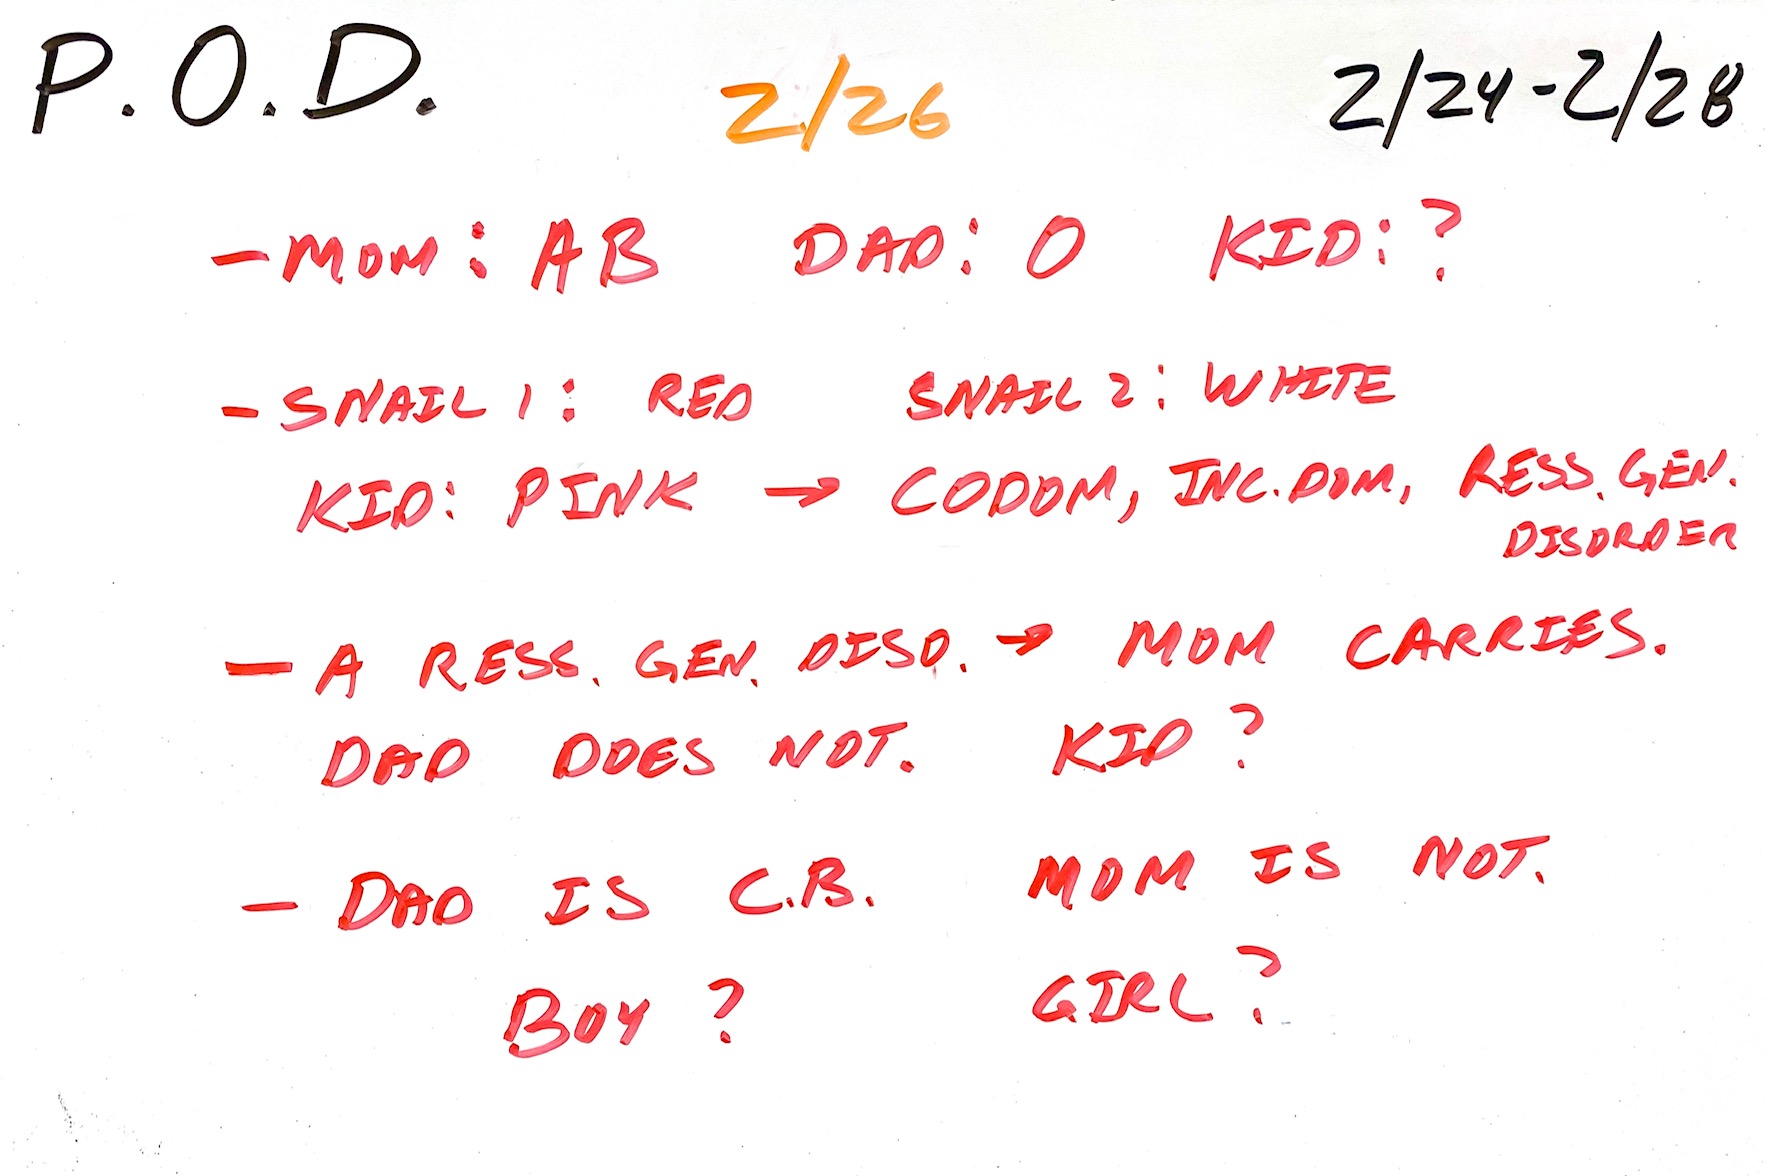 P.O.D. 2/26 2/24-2/28
- MOM: AB DAD: O KID: ?
- SNAIL 1: RED SNAIL 2: WHITE
KID: PINK → CODOM, INC. DOM, RESS. GEN.
DISORDER
- A RESS. GEN. DISO. → MOM CARRIES.
DAD DOES NOT. KID?
- DAD IS C.B. MOM IS NOT.
BOY? GIRL?